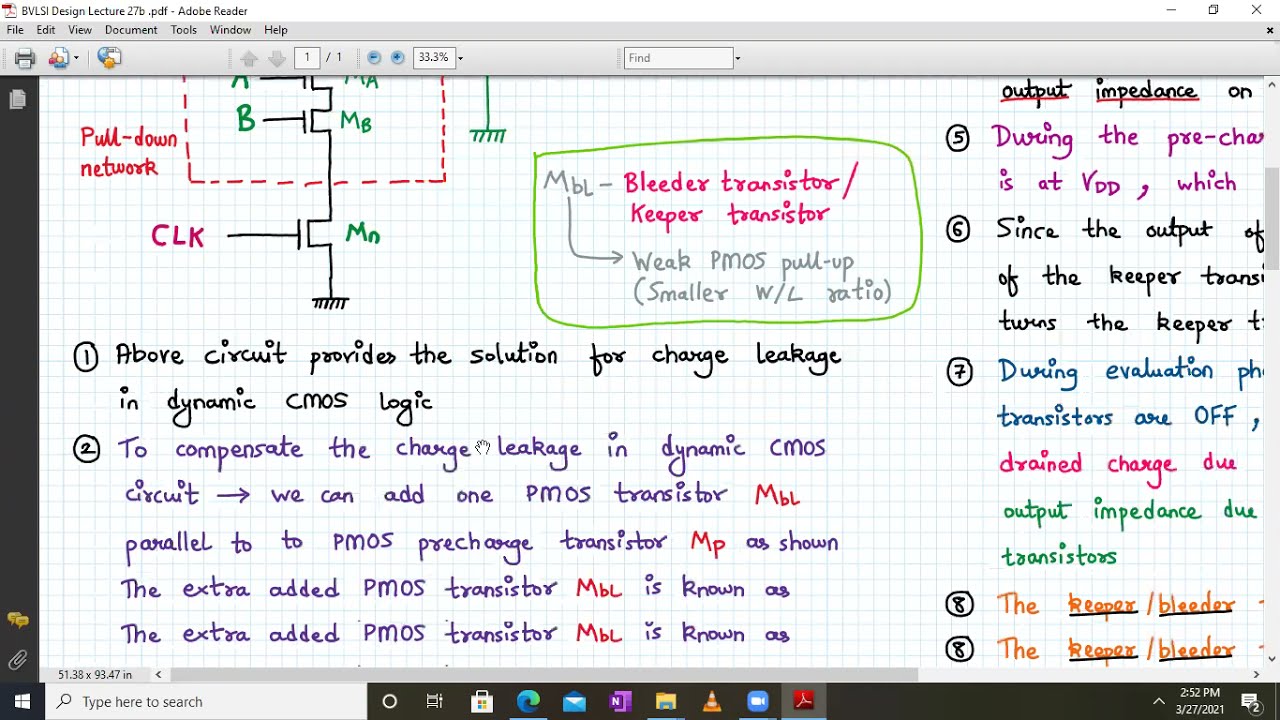 BVLSI Design Lecture 27b .pdf - Adobe Reader
File Edit View Document Tools Window Help
1 / 1 33.3% Find
A MA
B MB
Pull-down
network
CLK Mn
MbL - Bleeder transistor/
Keeper transistor
Weak PMOS pull-up
(Smaller W/L ratio)
① Above circuit provides the solution for charge leakage
in dynamic CMOS logic
② To compensate the charge leakage in dynamic CMOS
circuit → we can add one PMOS transistor MbL
parallel to to PMOS precharge transistor Mp as shown
The extra added PMOS transistor MbL is known as
The extra added PMOS transistor MbL is known as
output impedance on
⑤ During the pre-cha
is at VDD, which
⑥ Since the output of
of the keeper transi
turns the keeper t
⑦ During evaluation ph
transistors are OFF,
drained charge due
output impedance due
transistors
⑧ The keeper/bleeder
⑧ The keeper/bleeder
51.38 x 93.47 in
Type here to search
2:52 PM
3/27/2021
2